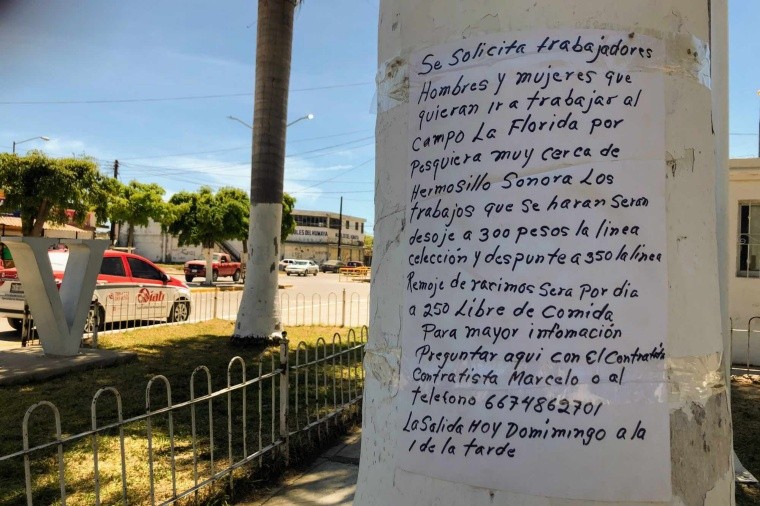 Se Solicita trabajadores
Hombres y mujeres que
quieran ir a trabajar al
Campo La Florida por
Pesquiera muy cerca de
Hermosillo Sonora Los
trabajos que se haran Seran
desoje a 300 pesos la linea
celección y despunte a 350 la linea
Remoje de rarimos Sera Por dia
a 250 Libre de Comida
Para mayor infomación
Preguntar aqui con El Contratis
Contratista Marcelo o al
telefono 6674862701
La Salida HOY Domimingo a la
1 de la tarde
V